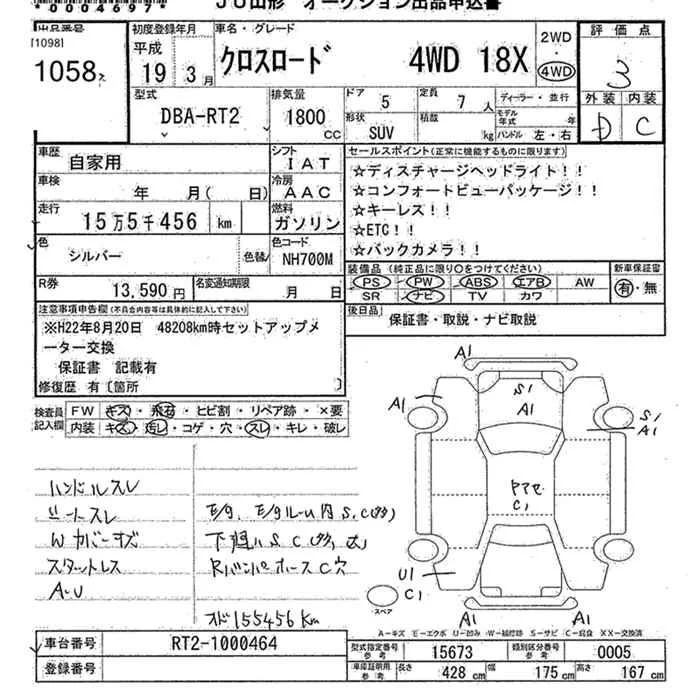 *0004697*
JU山形 オークション出品申込書
出品番号
[1098]
1058
初度登録年月
平成
19 年 3 月
車名・グレード
クロスロード 4WD 18X
2WD
・
4WD
評価点
3
外装 内装
D C
型式
DBA-RT2
排気量
1800 CC
ドア 5
定員 7 人
ディーラー・並行
形状 SUV
積載 kg
モデル年式 年
ハンドル 左・右
車歴 自家用
シフト IAT
車検 年 月( 日)
冷房 AAC
走行 15万5千456 km
燃料 ガソリン
色 シルバー 色替
色コード NH700M
R券 13,590 円
名変通知期限 月 日
セールスポイント(正常に機能するものに限ります)
☆ディスチャージヘッドライト!!
☆コンフォートビューパッケージ!!
☆キーレス!!
☆ETC!!
☆バックカメラ!!
装備品 (純正品に限り○をつけてください)
PS・PW・ABS・エアB・AW
SR・ナビ・TV・カワ
新車保証書
有・無
後日品 保証書・取説・ナビ取説
注意事項申告欄(不具合内容等は具体的に記入して下さい)
※H22年8月20日 48208km時セットアップメ
ーター交換
保証書 記載有
修復歴 有〔箇所 〕
検査員
記入欄
FW キズ・飛石・ヒビ割・リペア跡・×要
内装 キズ・汚レ・コゲ・穴・スレ・キレ・破レ
ハンドルスレ
シートスレ
Wカバーキズ
スタットレス
E/g、E/gルーム内S,C(多)
下廻りS C(多,大)
RバンパーホースC穴
オド155456Km
A1
A1
S1
A1
S1
A1
C1
U1
C1
スペア
A1
A1
A-キズ E-エクボ U-凹み W-補修跡 S-サビ C-腐食 XX-交換済
車台番号 RT2-1000464
登録番号
型式指定番号 参考 15673
類別区分番号 参考 0005
車庫証明用 参考 長さ 428 cm 幅 175 cm 高さ 167 cm